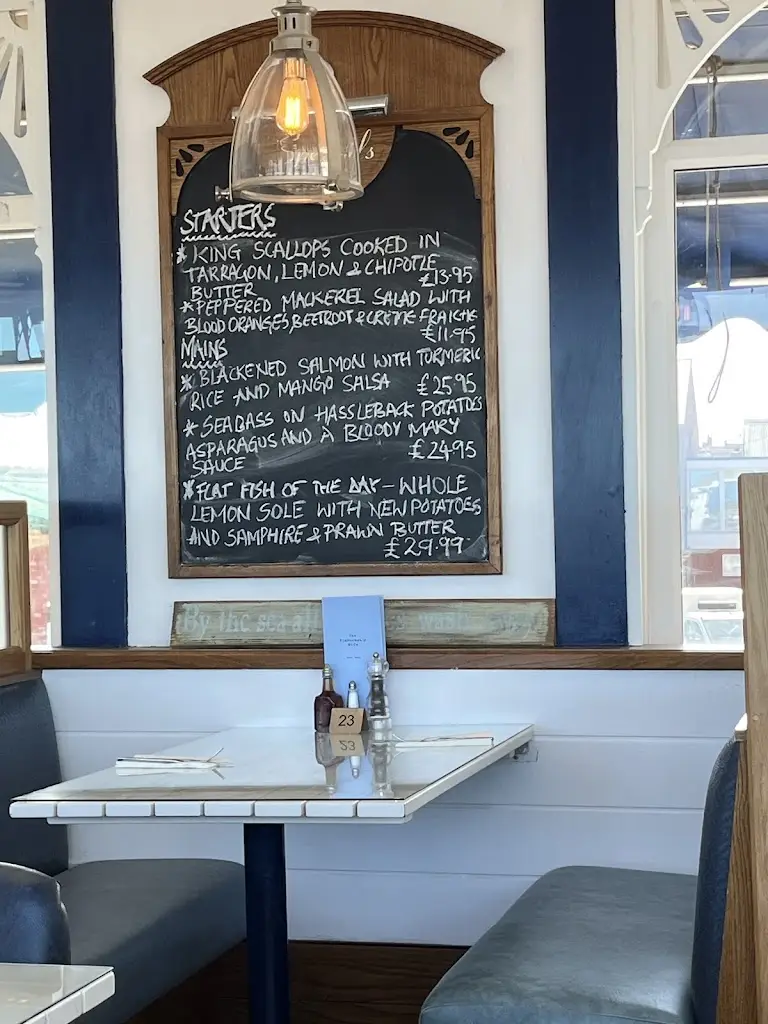 STARTERS
* KING SCALLOPS COOKED IN
TARRAGON, LEMON & CHIPOTLE
BUTTER £13.95
* PEPPERED MACKEREL SALAD WITH
BLOOD ORANGES, BEETROOT & CRÈME FRAICHE
£11.95
MAINS
* BLACKENED SALMON WITH TURMERIC
RICE AND MANGO SALSA £25.95
* SEABASS ON HASSLEBACK POTATOES
ASPARAGUS AND A BLOODY MARY
SAUCE £24.95
* FLAT FISH OF THE DAY - WHOLE
LEMON SOLE WITH NEW POTATOES
AND SAMPHIRE & PRAWN BUTTER
£29.99
By the sea all
23